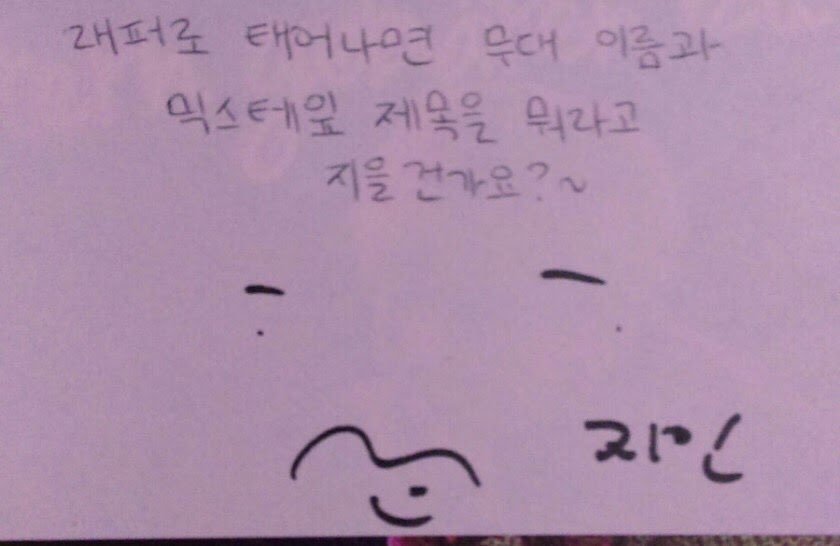 래퍼로 태어나면 무대 이름과
믹스테잎 제목을 뭐라고
지을건가요?~
지민